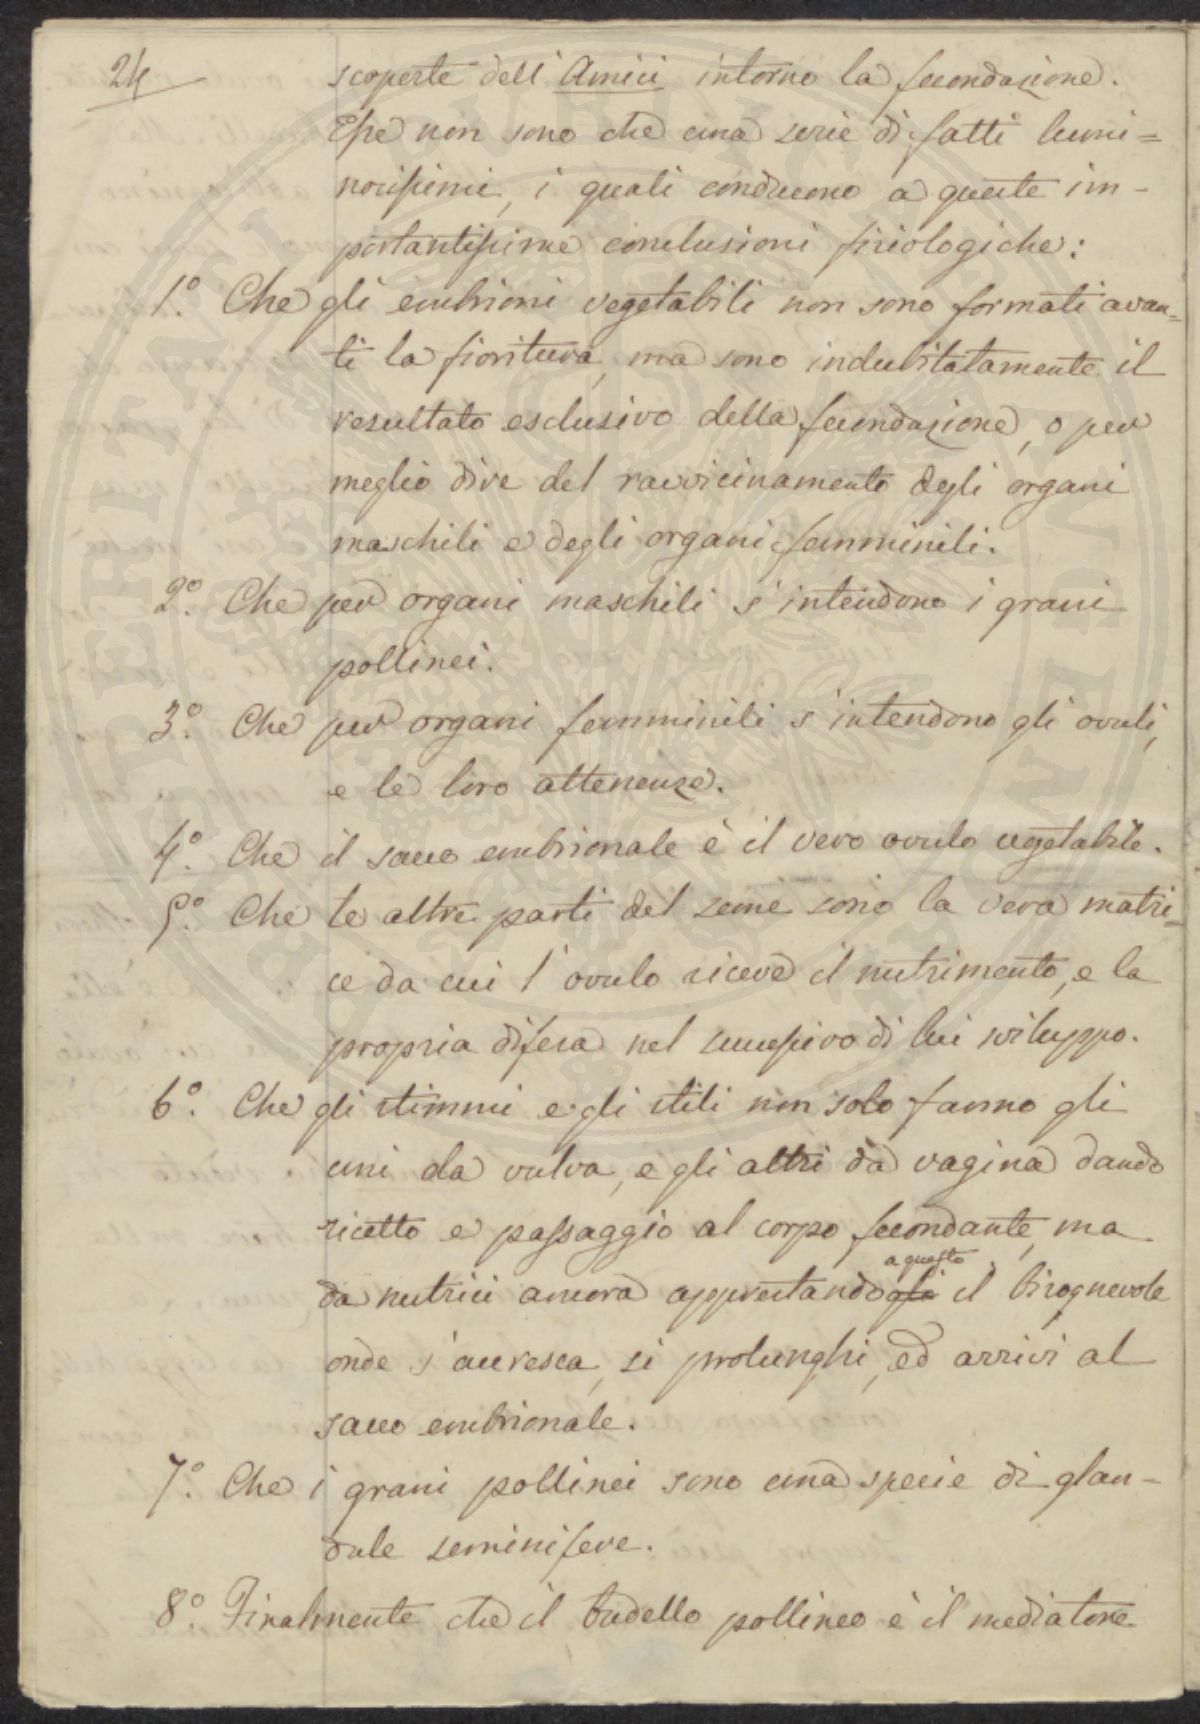 24
scoperte dell'Amici intorno la fecondazione.
Esse non sono che una serie di fatti lumi=
nosissimi, i quali conducono a queste im-
portantissime conclusioni fisiologiche:
1.° Che gli embrioni vegetabili non sono formati avan=
ti la fioritura, ma sono indubitatamente il
resultato esclusivo della fecondazione, o per
meglio dire del ravvicinamento degli organi
maschili e degli organi femminili.
2.° Che per organi maschili s'intendono i grani
pollinei.
3.° Che per organi femminili s'intendono gli ovuli,
e le loro attenenze.
4.° Che il sacco embrionale è il vero ovulo vegetabile.
5.° Che le altre parti del seme sono la vera matri=
ce da cui l'ovulo riceve il nutrimento, e la
propria difesa nel successivo di lui sviluppo.
6.° Che gli stimmi e gli stili non solo fanno gli
uni da vulva, e gli altri da vagina dando
ricetto e passaggio al corpo fecondante, ma
a questo
da nutrici ancora apprestandogli il bisognevole
onde s'accresca, si prolunghi, ed arrivi al
sacco embrionale.
7.° Che i grani pollinei sono una specie di glan-
dule seminifere.
8.° Finalmente che il budello pollineo è il mediatore